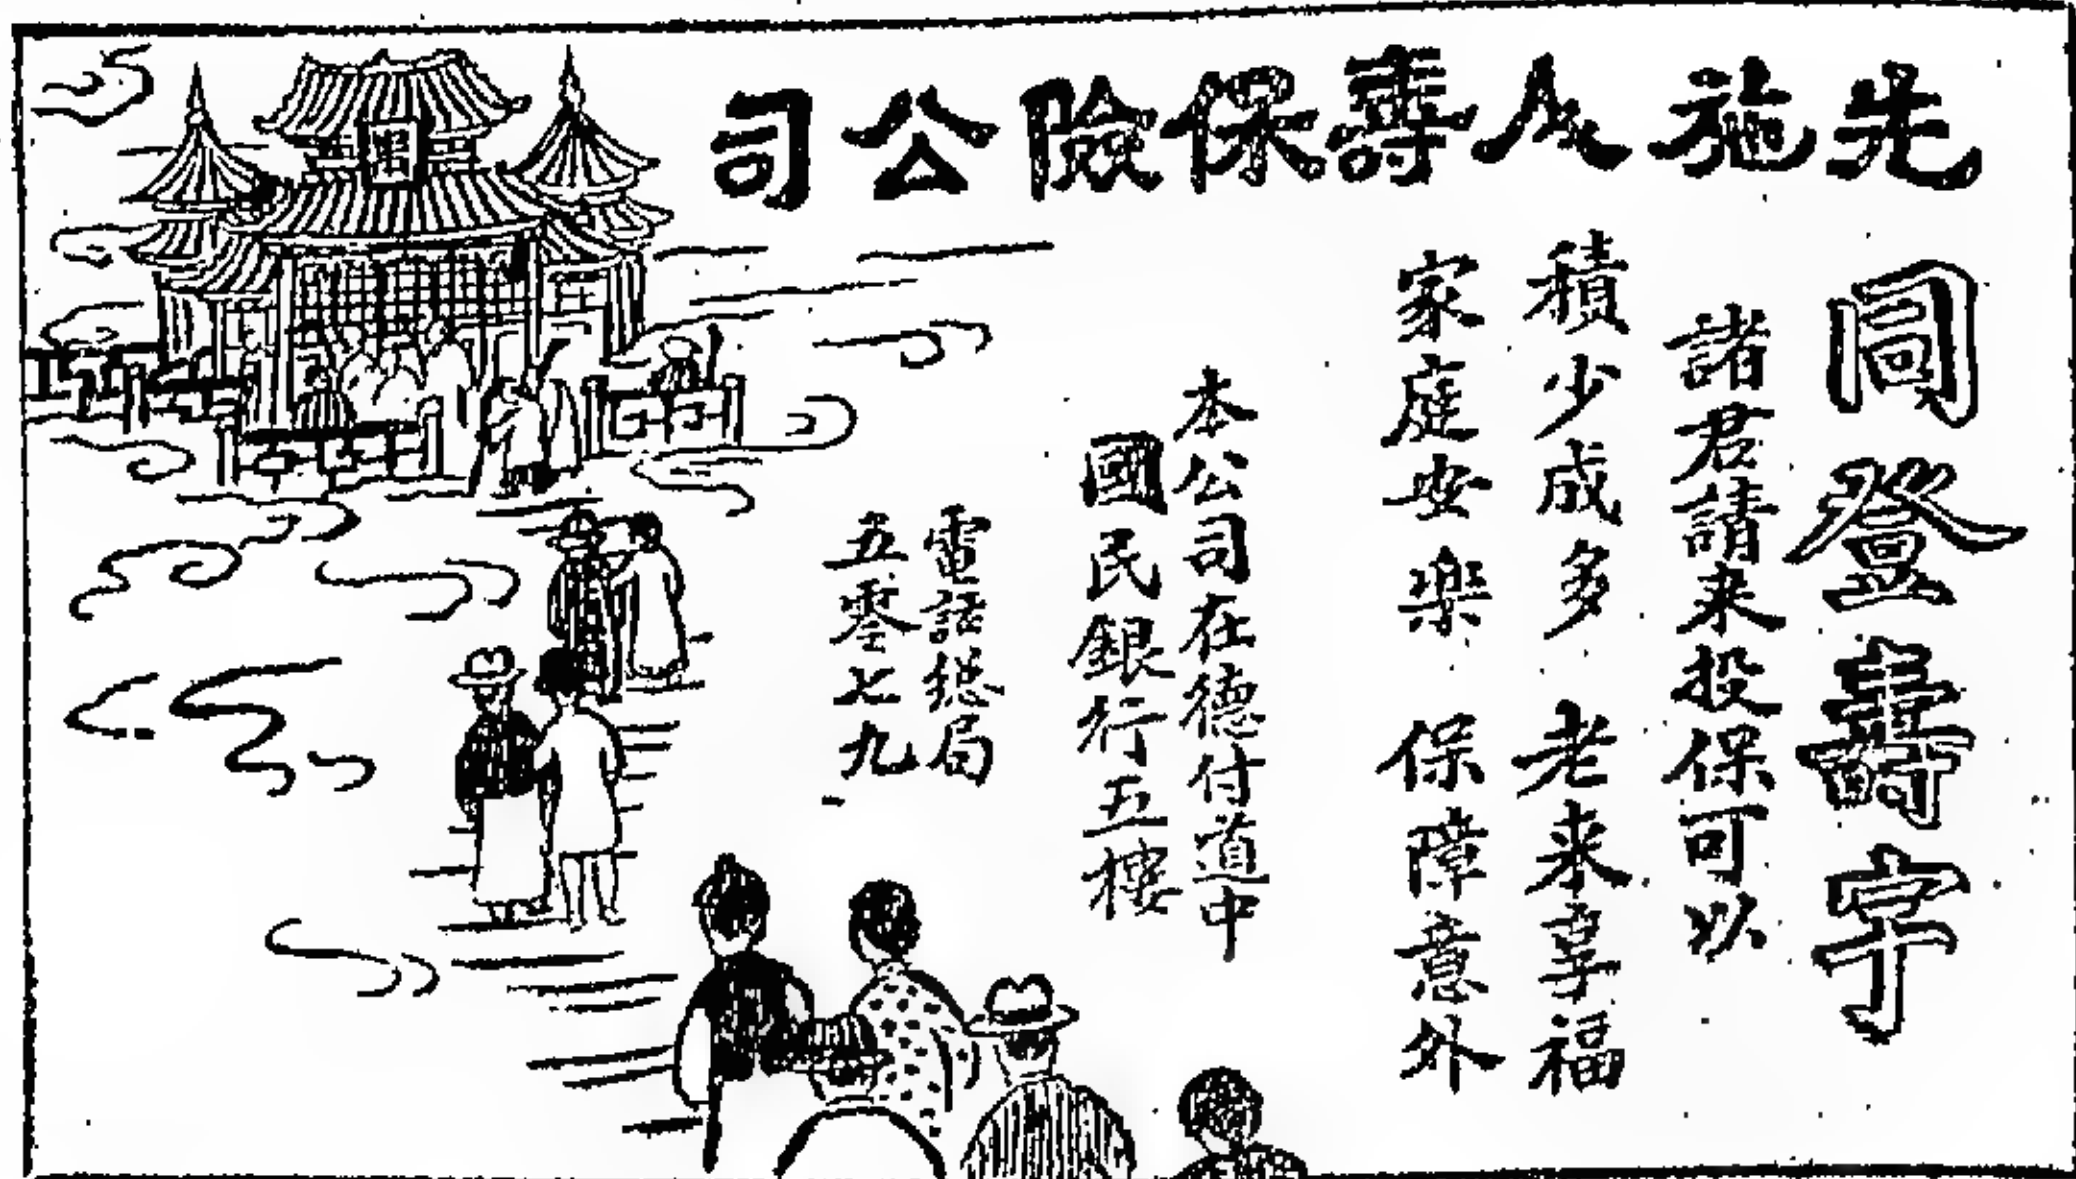 先施人壽保險公司
同登壽字
諸君請来投保可以
積少成多 老来享福
家庭安樂 保障意外
本公司在德付道中
國民銀行五樓
電話総局
五零七九